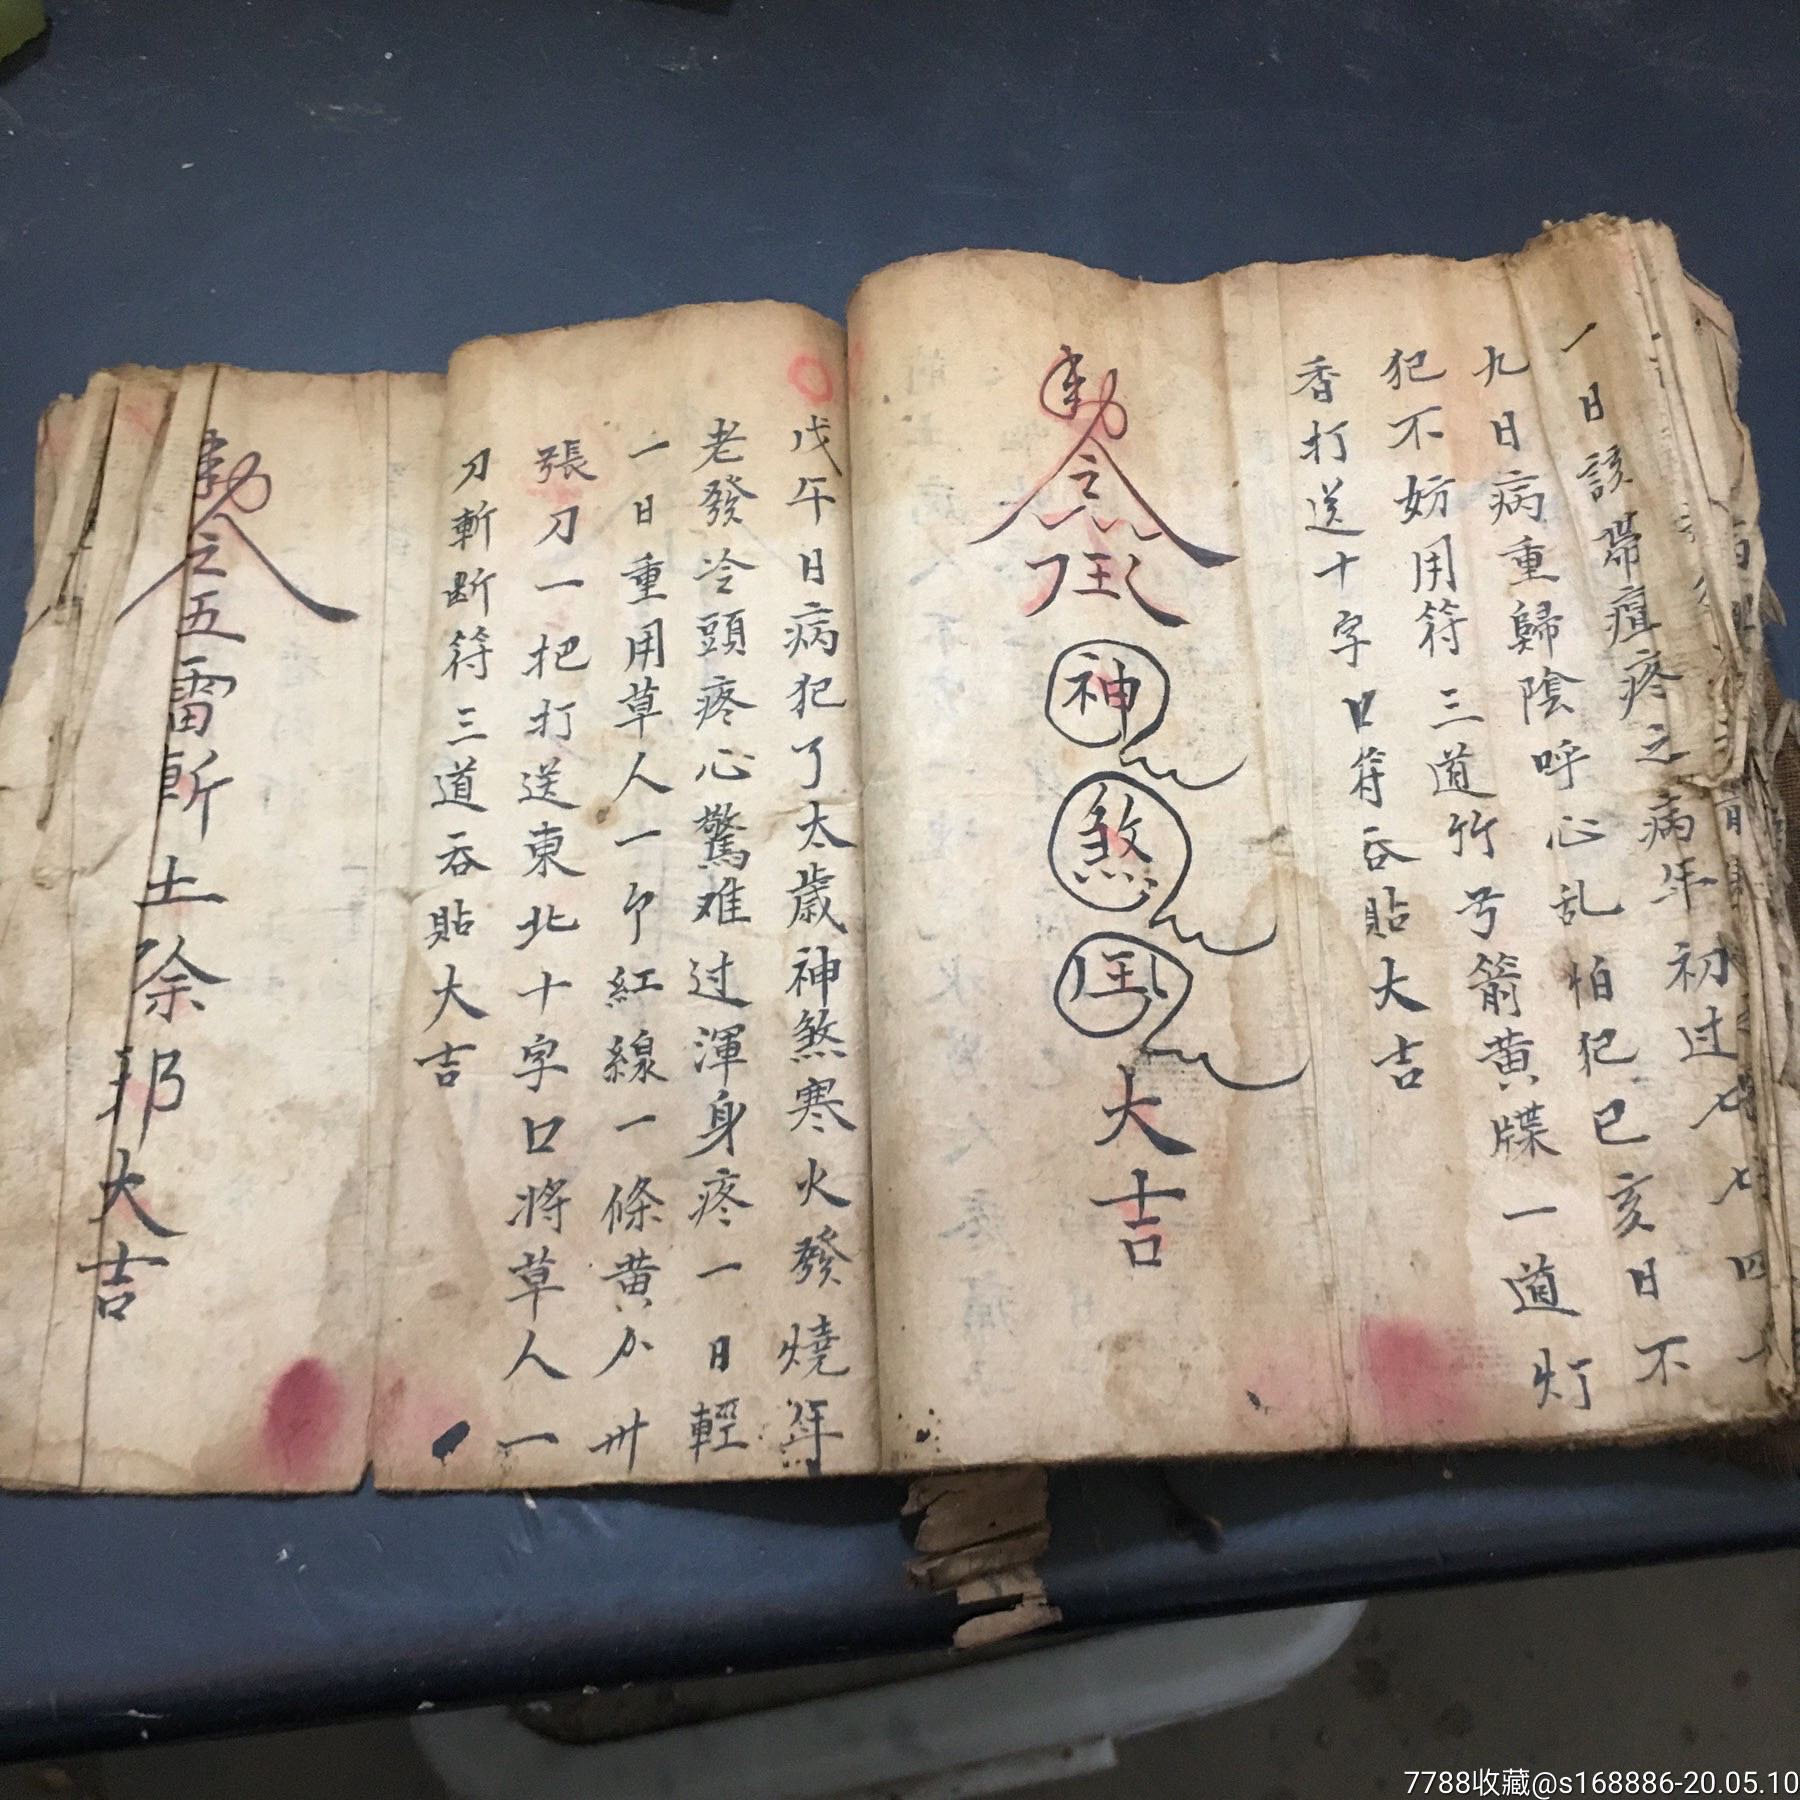 一日該帶瘟疼之病年初过七七四一
九日病重歸陰呼心乱怕犯己亥日不
犯不妨用符三道竹弓箭黄牒一道灯
香打送十字口符吞貼大吉
勅令
神
煞
大吉
戊午日病犯了太歳神煞寒火發燒年
老發冷頭疼心驚难过渾身疼一日輕
一日重用草人一个紅線一條黄介卅
張刀一把打送東北十字口將草人一
刀斬断符三道吞貼大吉
勅令五雷斬土
大吉
7788收藏@s168886-20.05.10